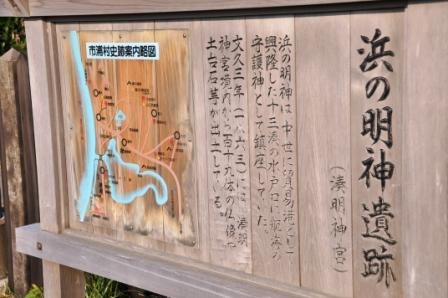 浜の明神遺跡
(湊明神宮)
浜の明神は、中世に貿易港として
興隆した十三湊の水戸口に航海の
守護神として鎮座していた。
文久三年(一八六三)には、湊明
神宮境内から百十九体の仏像や
土台石等が出土している。
市浦村史跡案内略図